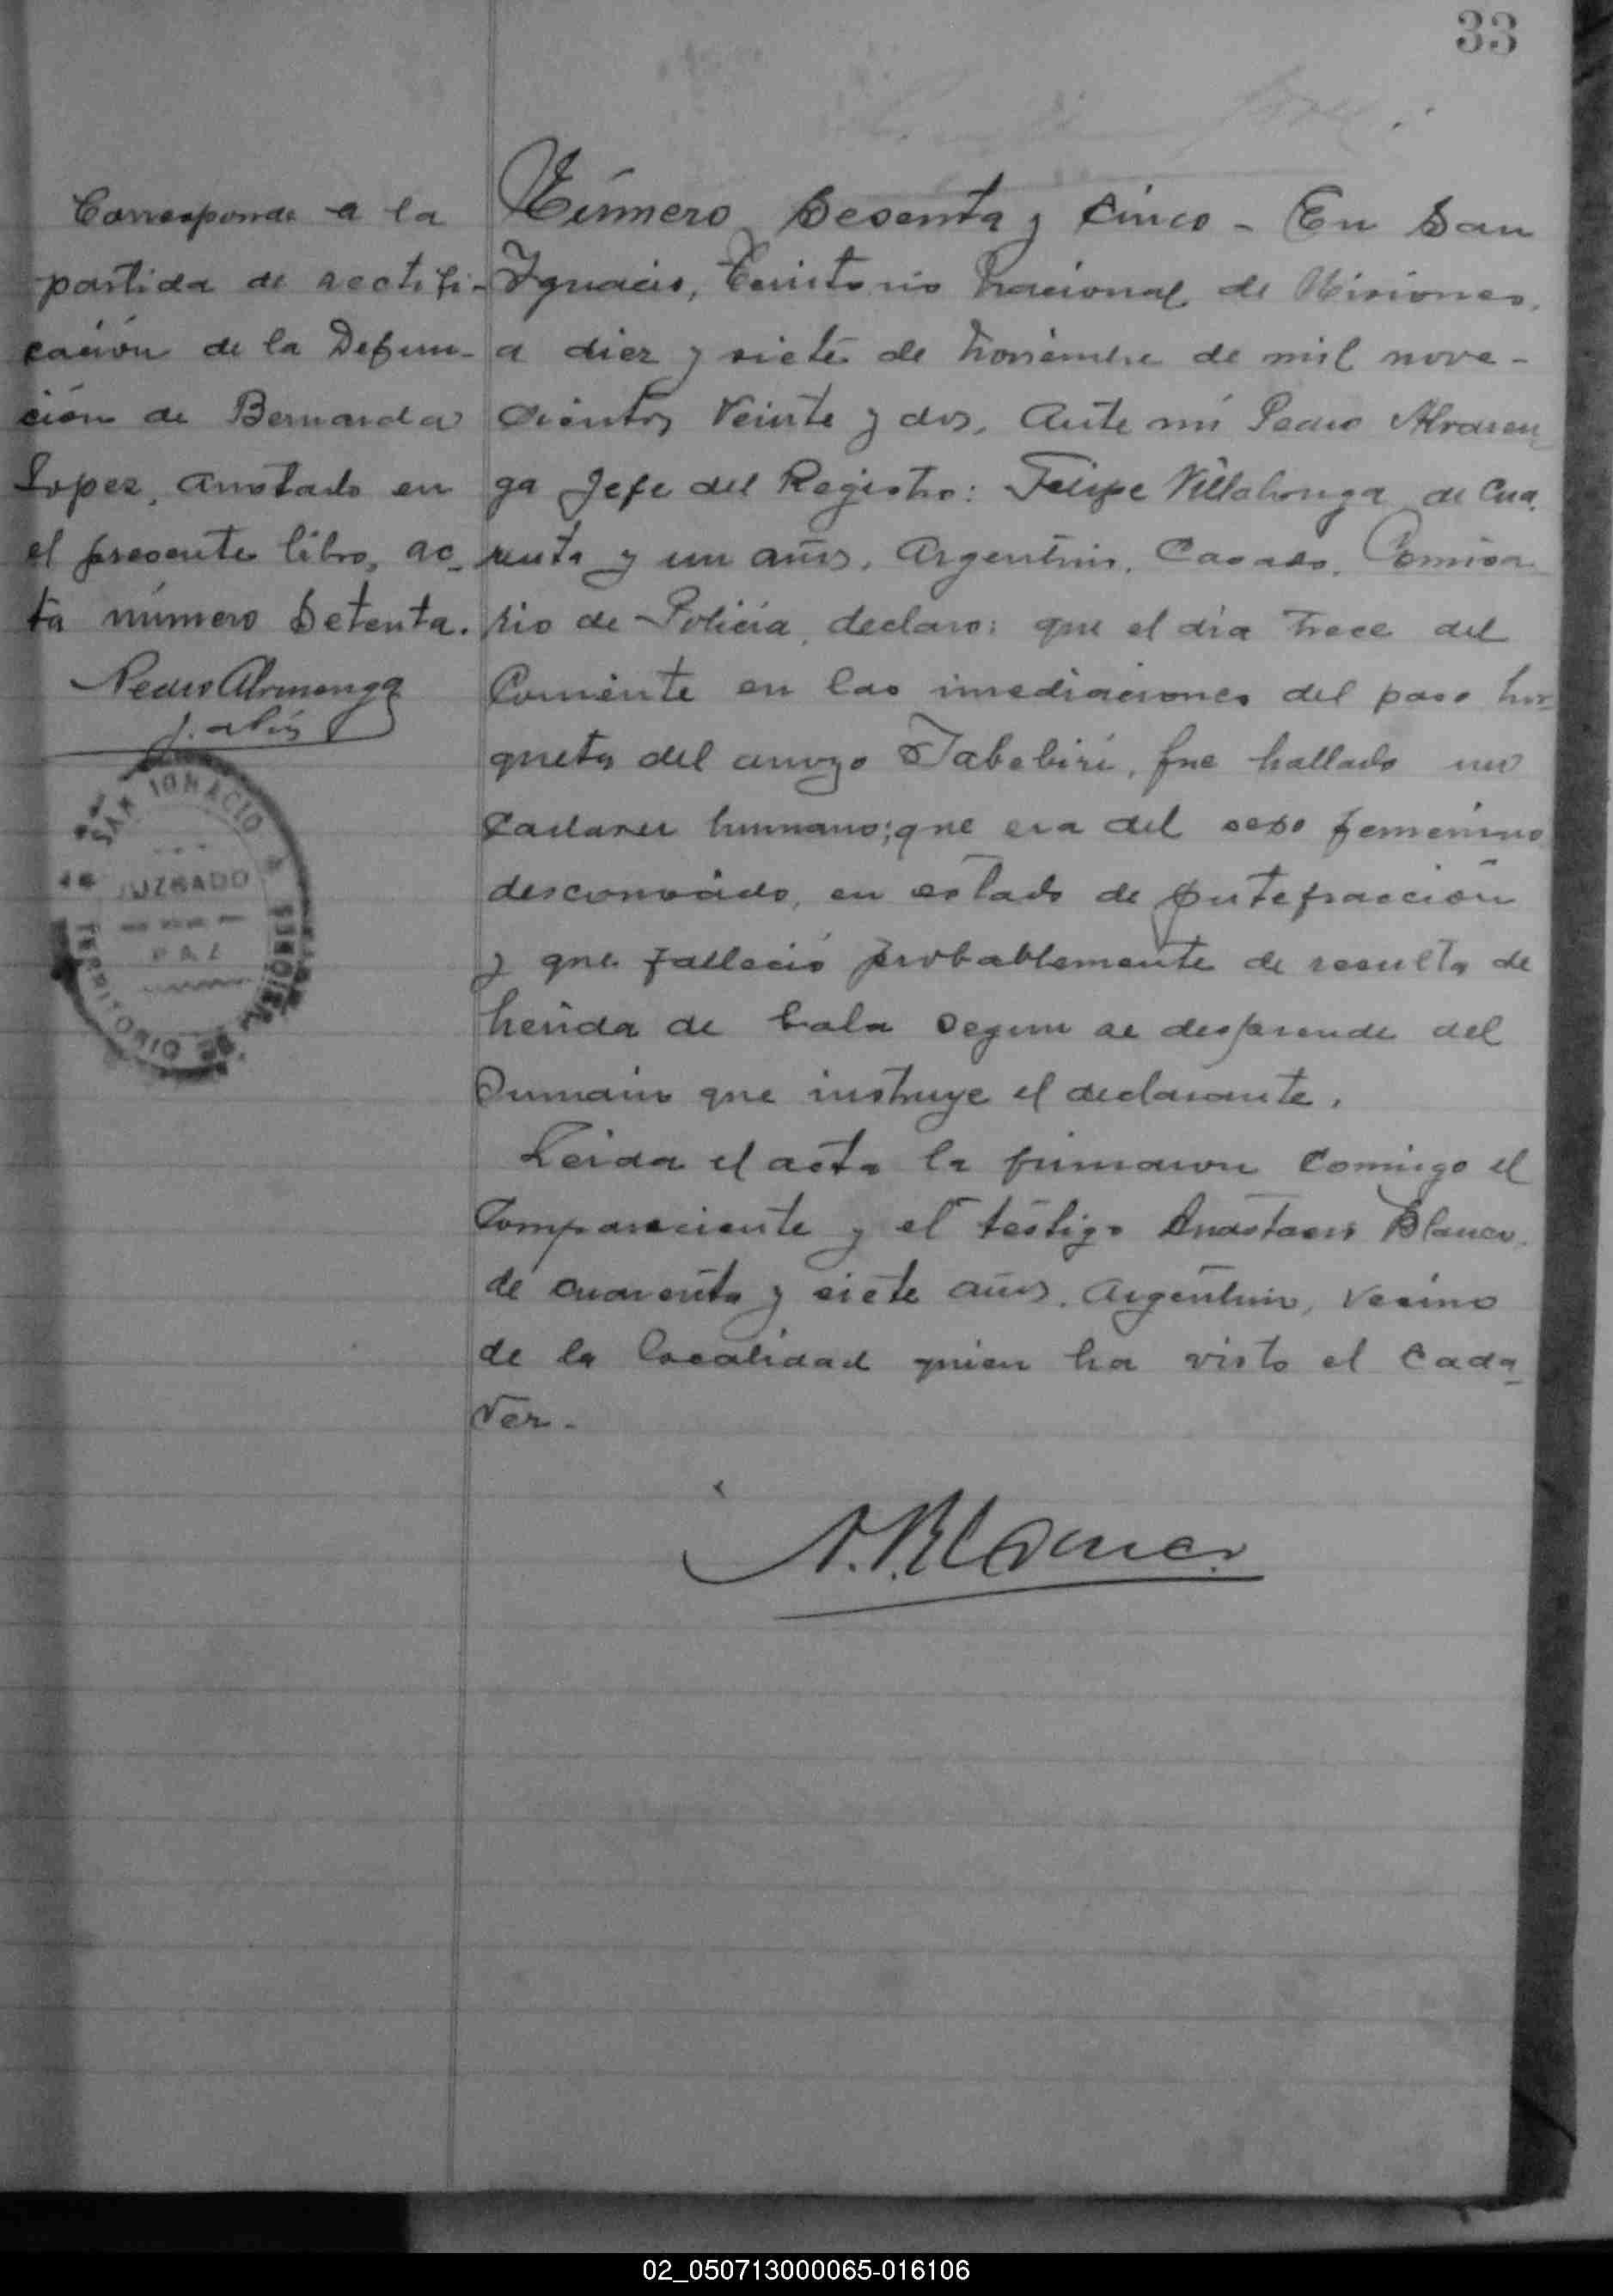 33
Corresponde a la
partida de rectifi-
cación de la Defun-
ción de Bernarda
Lopez, anotado en
el presente libro, ac-
ta número Setenta.
Pedro Alvarenga
SAN IGNACIO
JUZGADO
PAZ
TERRITORIO DE MISIONES
Número Sesenta y Cinco - En San
Ignacio, Territorio Nacional de Misiones,
a diez y siete de Noviembre de mil nove-
cientos Veinte y dos, Ante mi Pedro Alvaren
ga Jefe del Registro: Felipe Villalonga de Cua
renta y un años, Argentino, Casado, Comisa
rio de Policía, declaro: que el día trece del
Corriente en las imediaciones del paso hor-
queta del arroyo Yabebirí, fue hallado un
Cadaver humano; que era del sexo femenino
desconocido, en estado de putefracción
y que falleció probablemente de resulta de
herida de bala segun se desprende del
Sumario que instruye el declarante.
Leida el acta la firmaron Comigo el
Compareciente y el testigo Anastacio Blanco
de cuarenta y siete años, Argentino, Vecino
de la localidad quien ha visto el Cada-
ver -
A. Blanco
02_050713000065-016106